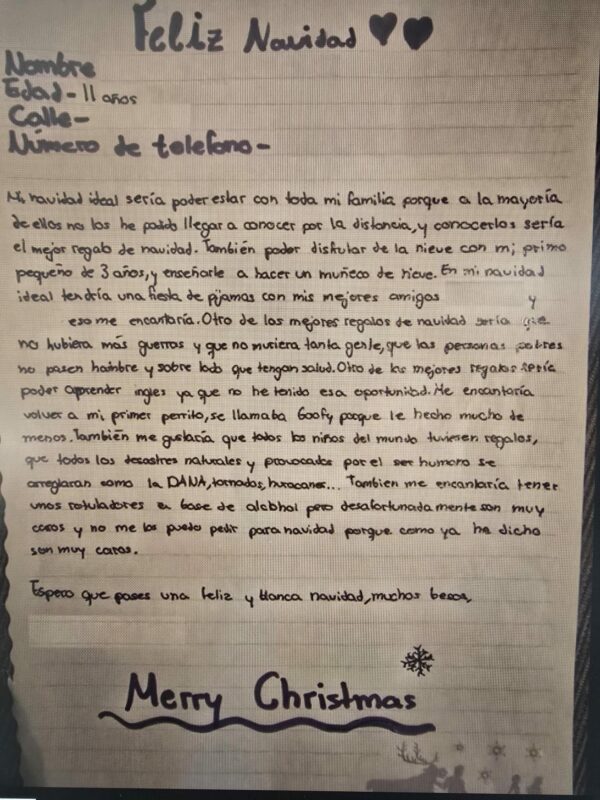 Feliz Navidad
Nombre
Edad - 11 años
Calle -
Número de telefono -
Mi navidad ideal sería poder estar con toda mi familia porque a la mayoría
de ellos no los he podido llegar a conocer por la distancia, y conocerlos sería
el mejor regalo de navidad. También poder disfrutar de la nieve con mi primo
pequeño de 3 años, y enseñarle a hacer un muñeco de nieve. En mi navidad
ideal tendría una fiesta de pijamas con mis mejores amigos y
eso me encantaría. Otro de los mejores regalos de navidad sería que
no hubiera más guerras y que no muriera tanta gente, que las personas pobres
no pasen hambre y sobre todo que tengan salud. Otro de los mejores regalos sería
poder aprender ingles ya que no he tenido esa oportunidad. Me encantaría
volver a mi primer perrito, se llamaba Goofy porque le hecho mucho de
menos. También me gustaría que todos los niños del mundo tuviesen regalos,
que todos los desastres naturales y provocados por el ser humano se
arreglaran como la DANA, tornados, huracanes... Tambien me encantaría tener
unos rotuladores en base de alcohol pero desafortunadamente son muy
caros y no me los puedo pedir para navidad porque como ya he dicho
son muy caros.
Espero que pases una feliz y blanca navidad, muchos besos,
Merry Christmas